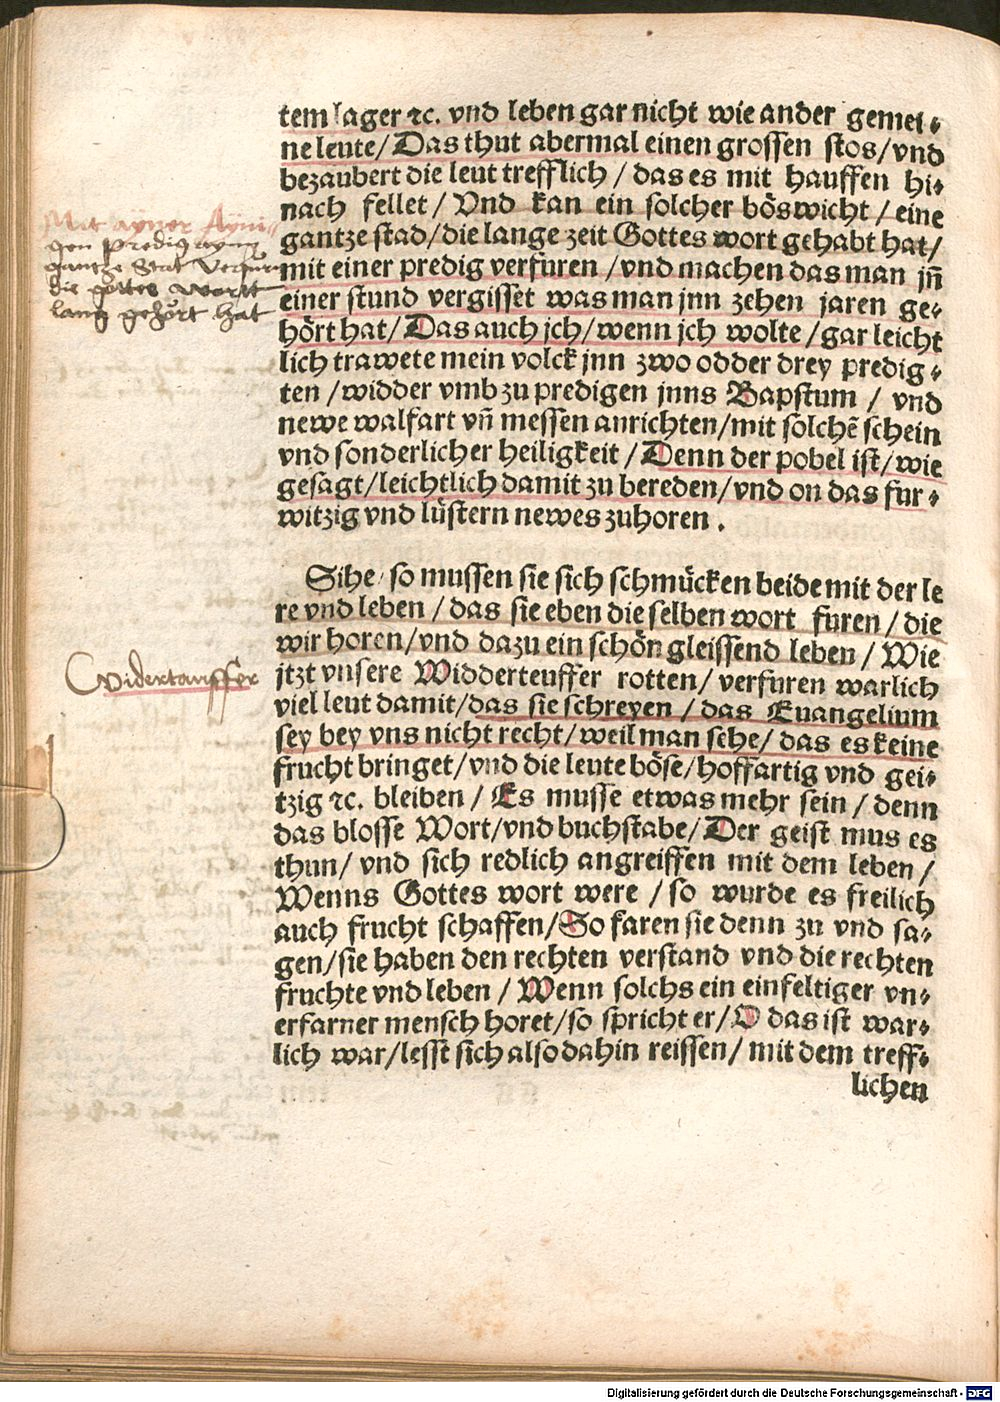 tem lager ⁊c. vnd leben gar nicht wie ander gemei⸗
ne leute/Das thut abermal einen grossen stos/vnd
bezaubert die leut trefflich / das es mit hauffen hi⸗
nach fellet / Vnd kan ein solcher böswicht / eine
gantze stad/die lange zeit Gottes wort gehabt hat/
mit einer predig verfuren /vnd machen das man jñ
einer stund vergisset was man jnn zehen jaren ge⸗
hört hat/Das auch jch/wenn jch wolte/gar leicht
lich trawete mein volck jnn zwo odder drey predig⸗
ten /widder vmb zu predigen jnns Bapstum / vnd
newe walfart vñ messen anrichten/mit solchē schein
vnd sonderlicher heiligkeit /Denn der pobel ist/wie
gesagt/leichtlich damit zu bereden/vnd on das fur⸗
witzig vnd lüstern newes zuhoren .
Sihe/ so mussen sie sich schmücken beide mit der le
re vnd leben / das sie eben die selben wort furen / die
wir horen/vnd dazu ein schön gleissend leben / Wie
jtzt vnsere Widderteuffer rotten/ verfuren warlich
viel leut damit/das sie schreyen / das Euangelium
sey bey vns nicht recht/weil man sehe/ das es keine
frucht bringet/vnd die leute böse/hoffartig vnd gei⸗
tzig ⁊c. bleiben / Es musse etwas mehr sein / denn
das blosse Wort/vnd buchstabe/Der geist mus es
thun/ vnd sich redlich angreiffen mit dem leben /
Wenns Gottes wort were / so wurde es freilich
auch frucht schaffen/So faren sie denn zu vnd sa⸗
gen/sie haben den rechten verstand vnd die rechten
fruchte vnd leben / Wenn solchs ein einfeltiger vn⸗
erfarner mensch horet/so spricht er/O das ist war⸗
lich war/lesst sich also dahin reissen/ mit dem treff⸗
lichen
Mit ayner Ayni⸗
gen predig ayn
gantze Stat verfurn
die gottes wortt
lang gehört hat
Widertauffer
Digitalisierung gefördert durch die Deutsche Forschungsgemeinschaft - DFG